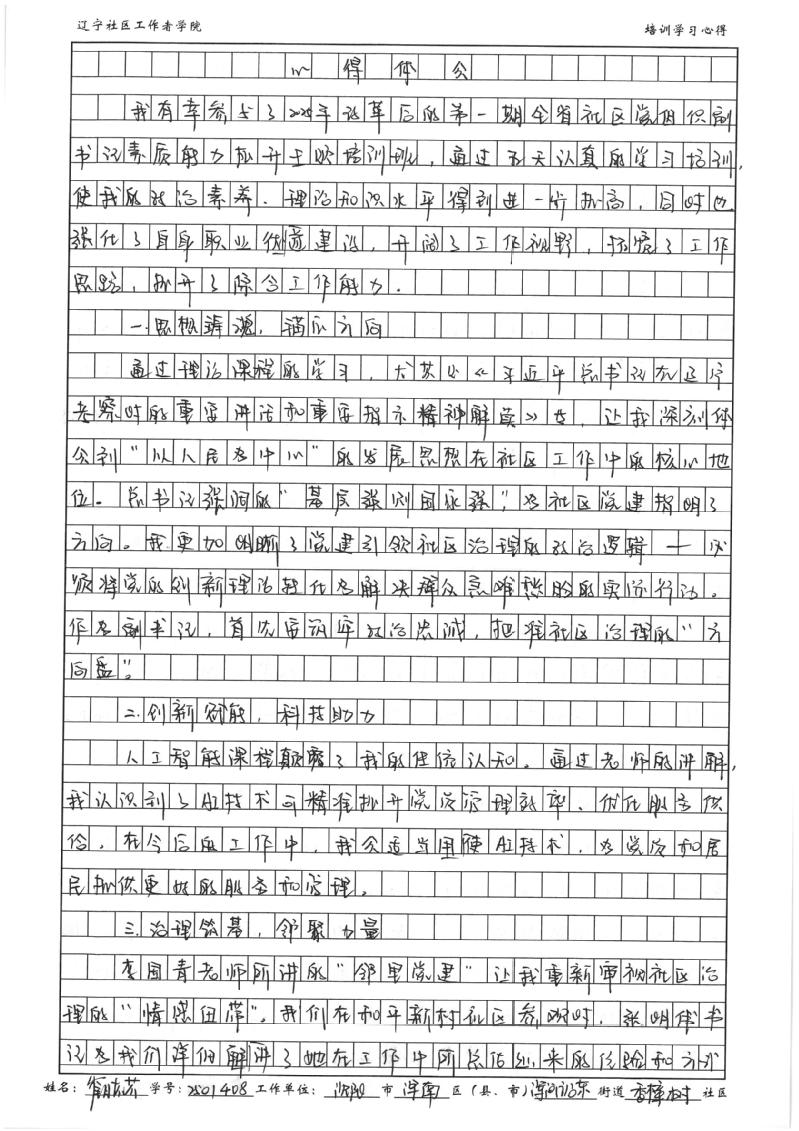 辽宁社区工作者学院 培训学习心得
心得体会
我有幸参与了2025年改革后的第一期全省社区党组织副
书记素质能力提升主题培训班，通过五天认真的学习培训，
使我的政治素养、理论知识水平得到进一步提高，同时也
强化了自身职业使命建设，开阔了工作视野，拓宽了工作
思路，提升了综合工作能力．
一.思想铸魂，锚定方向
通过理论课程的学习，尤其是《习近平总书记在辽宁
考察时的重要讲话和重要指示精神解读》中，让我深刻体
会到“以人民为中心”的发展思想在社区工作中的核心地
位。总书记强调的“基层强则国家强”，为社区党建指明了
方向。我更加明晰了党建引领社区治理的政治逻辑——必
须将党的创新理论转化为解决群众急难愁盼的实际行动。
作为副书记，首先要筑牢政治忠诚，把准社区治理的“方
向盘”。
二.创新赋能，科技助力
人工智能课程颠覆了我的传统认知。通过老师的讲解，
我认识到了AI技术可精准提升党员管理效率、优化服务供
给，在今后的工作中，我会适当用使AI技术，为党员和居
民提供更好的服务和管理。
三.治理筑基，邻聚力量
李国青老师所讲的“邻里党建”让我重新审视社区治
理的“情感纽带”。我们在和平新村社区参观时，张明伟书
记为我们详细解讲了她在工作中所总结出来的经验和方式
姓名： 学号：2501408 工作单位：沈阳 市 浑南 区（县、市） 街道 香樟树 社区